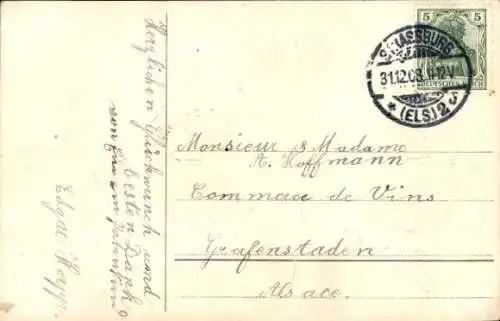 Herzlichen Glückwunsch und
besten Dank
von
Edgar
5 5
DEUTSCHES REICH
STRASSBURG
31.12.08. 11-12V
* (ELS.) 2
Monsieur & Madame
A. Hoffmann
Commerce de Vins
Grafenstaden
Alsace.